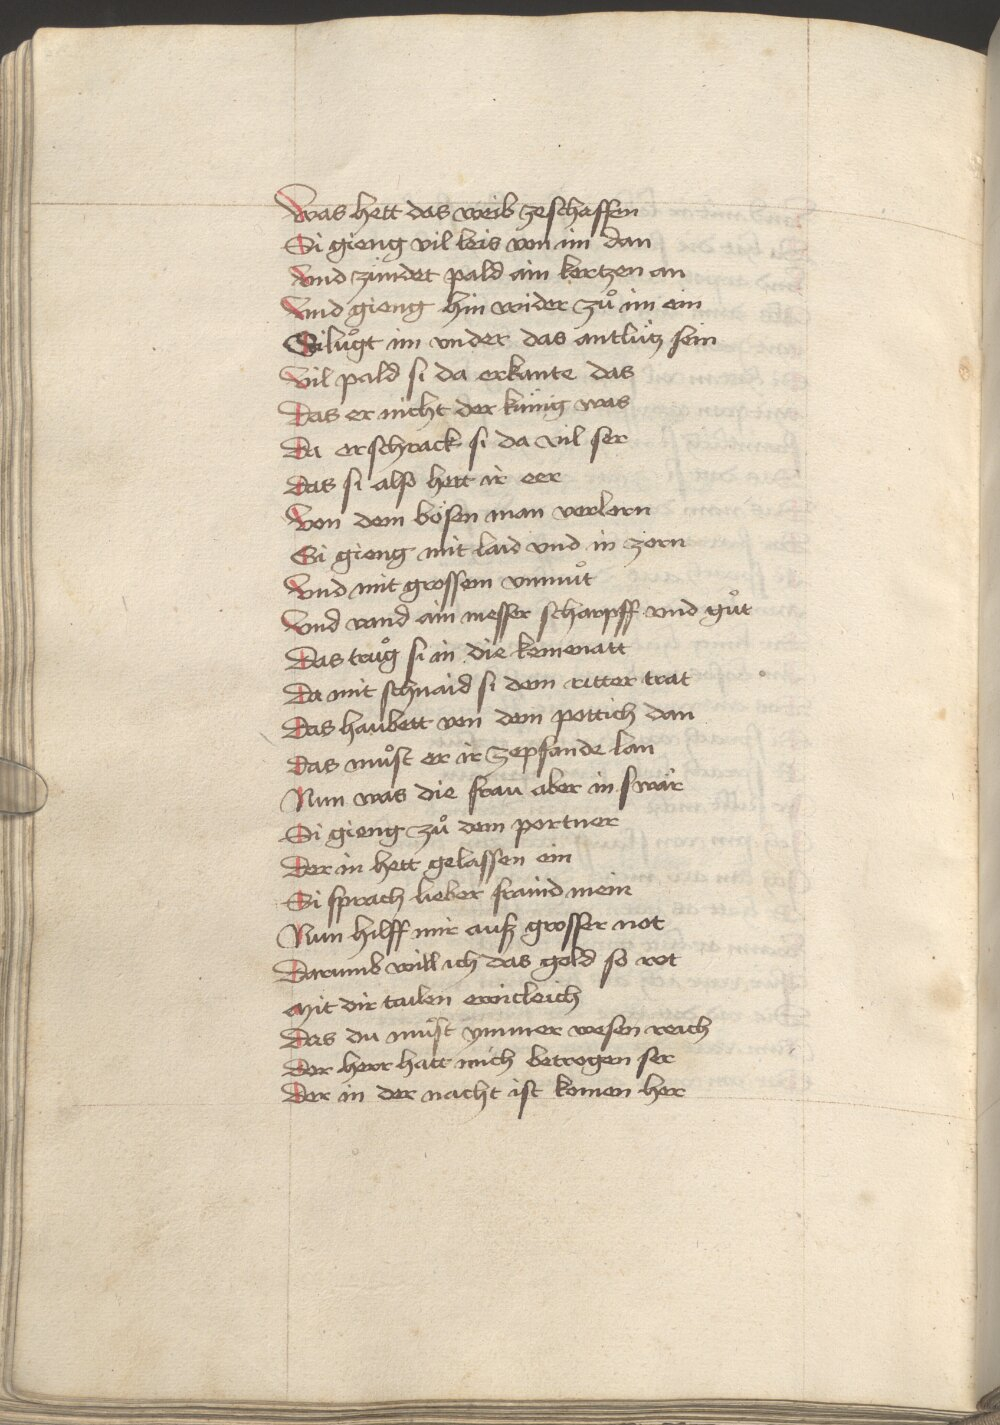 Was hett das weib zeschaffen
Si gieng vil leis von im dan
Vnd zündet pald ain kertzen an
Vnd gieng hin wider zuͦ im ein
Si luͦgt im vnder das antlütz sein
Vil pald si da erkante das
Das er nicht der künig was
Da erschrack si da vil ser
Das si also hett ir eer
Von dem bösen man verlorn
Si gieng mit laid vnd in zorn
Vnd mit grossem vnmuͦt
Vnd vand ain messer scharpff vnd guͦt
Das truͦg si in die kemenatt
Da mit schnaid si dem ritter trat
Das haubett von dem pottich dan
Das muͦst er ir zepfande lan
Nun was die frau aber in swär
Si gieng zuͦ dem portner
Der in hett gelassen ein
Si sprach lieber fraind mein
Nun hilff mir auß grosser not
Darumb will ich das gold so rot
Mit dir tailen ewicleich
Das du muͦst ymmer wesen reich
Der herr hatt mich betrogen ser
Der in der nacht ist komen her